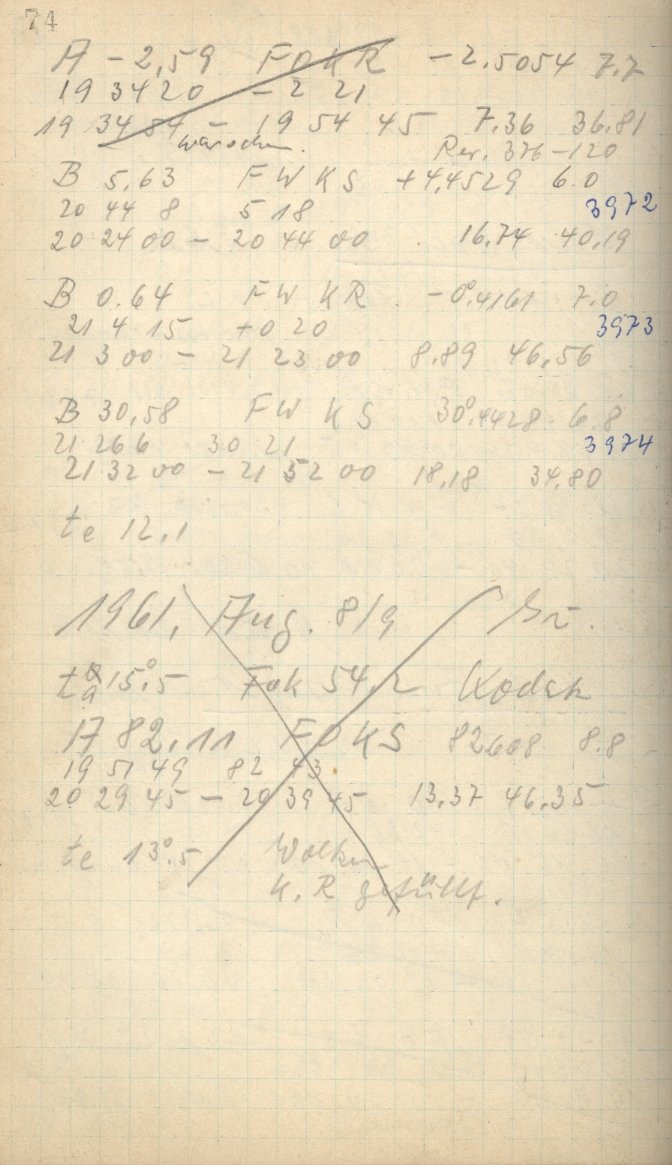 74
A -2,59 FOKR -2.5054 7.7
19 34 20 -2 21
19 34 84 - 19 54 45 7.36 36.81
Rev. 376-120
B 5,63 FWKS +4,4529 6.0
20 44 8 5 18 3972
20 24 00 - 20 44 00 16,74 40,19
B 0.64 FW KR -0°.4161 7.0
21 4 15 +0 20 3973
21 3 00 - 21 23 00 8.89 46.56
B 30,58 FW KS 30°.4428 6.8
21 26 6 30 21 3974
21 32 00 - 21 52 00 18,18 34.80
te 12,1
1961, Aug. 8/9
ta 15°,5 Fok 54,2 Kodak
A 82,11 FOKS 82608 8.8
19 51 49 82 43
20 29 45 - 20 39 45 13,37 46.35
te 13°,5 Wolken
K.R gefüllt.